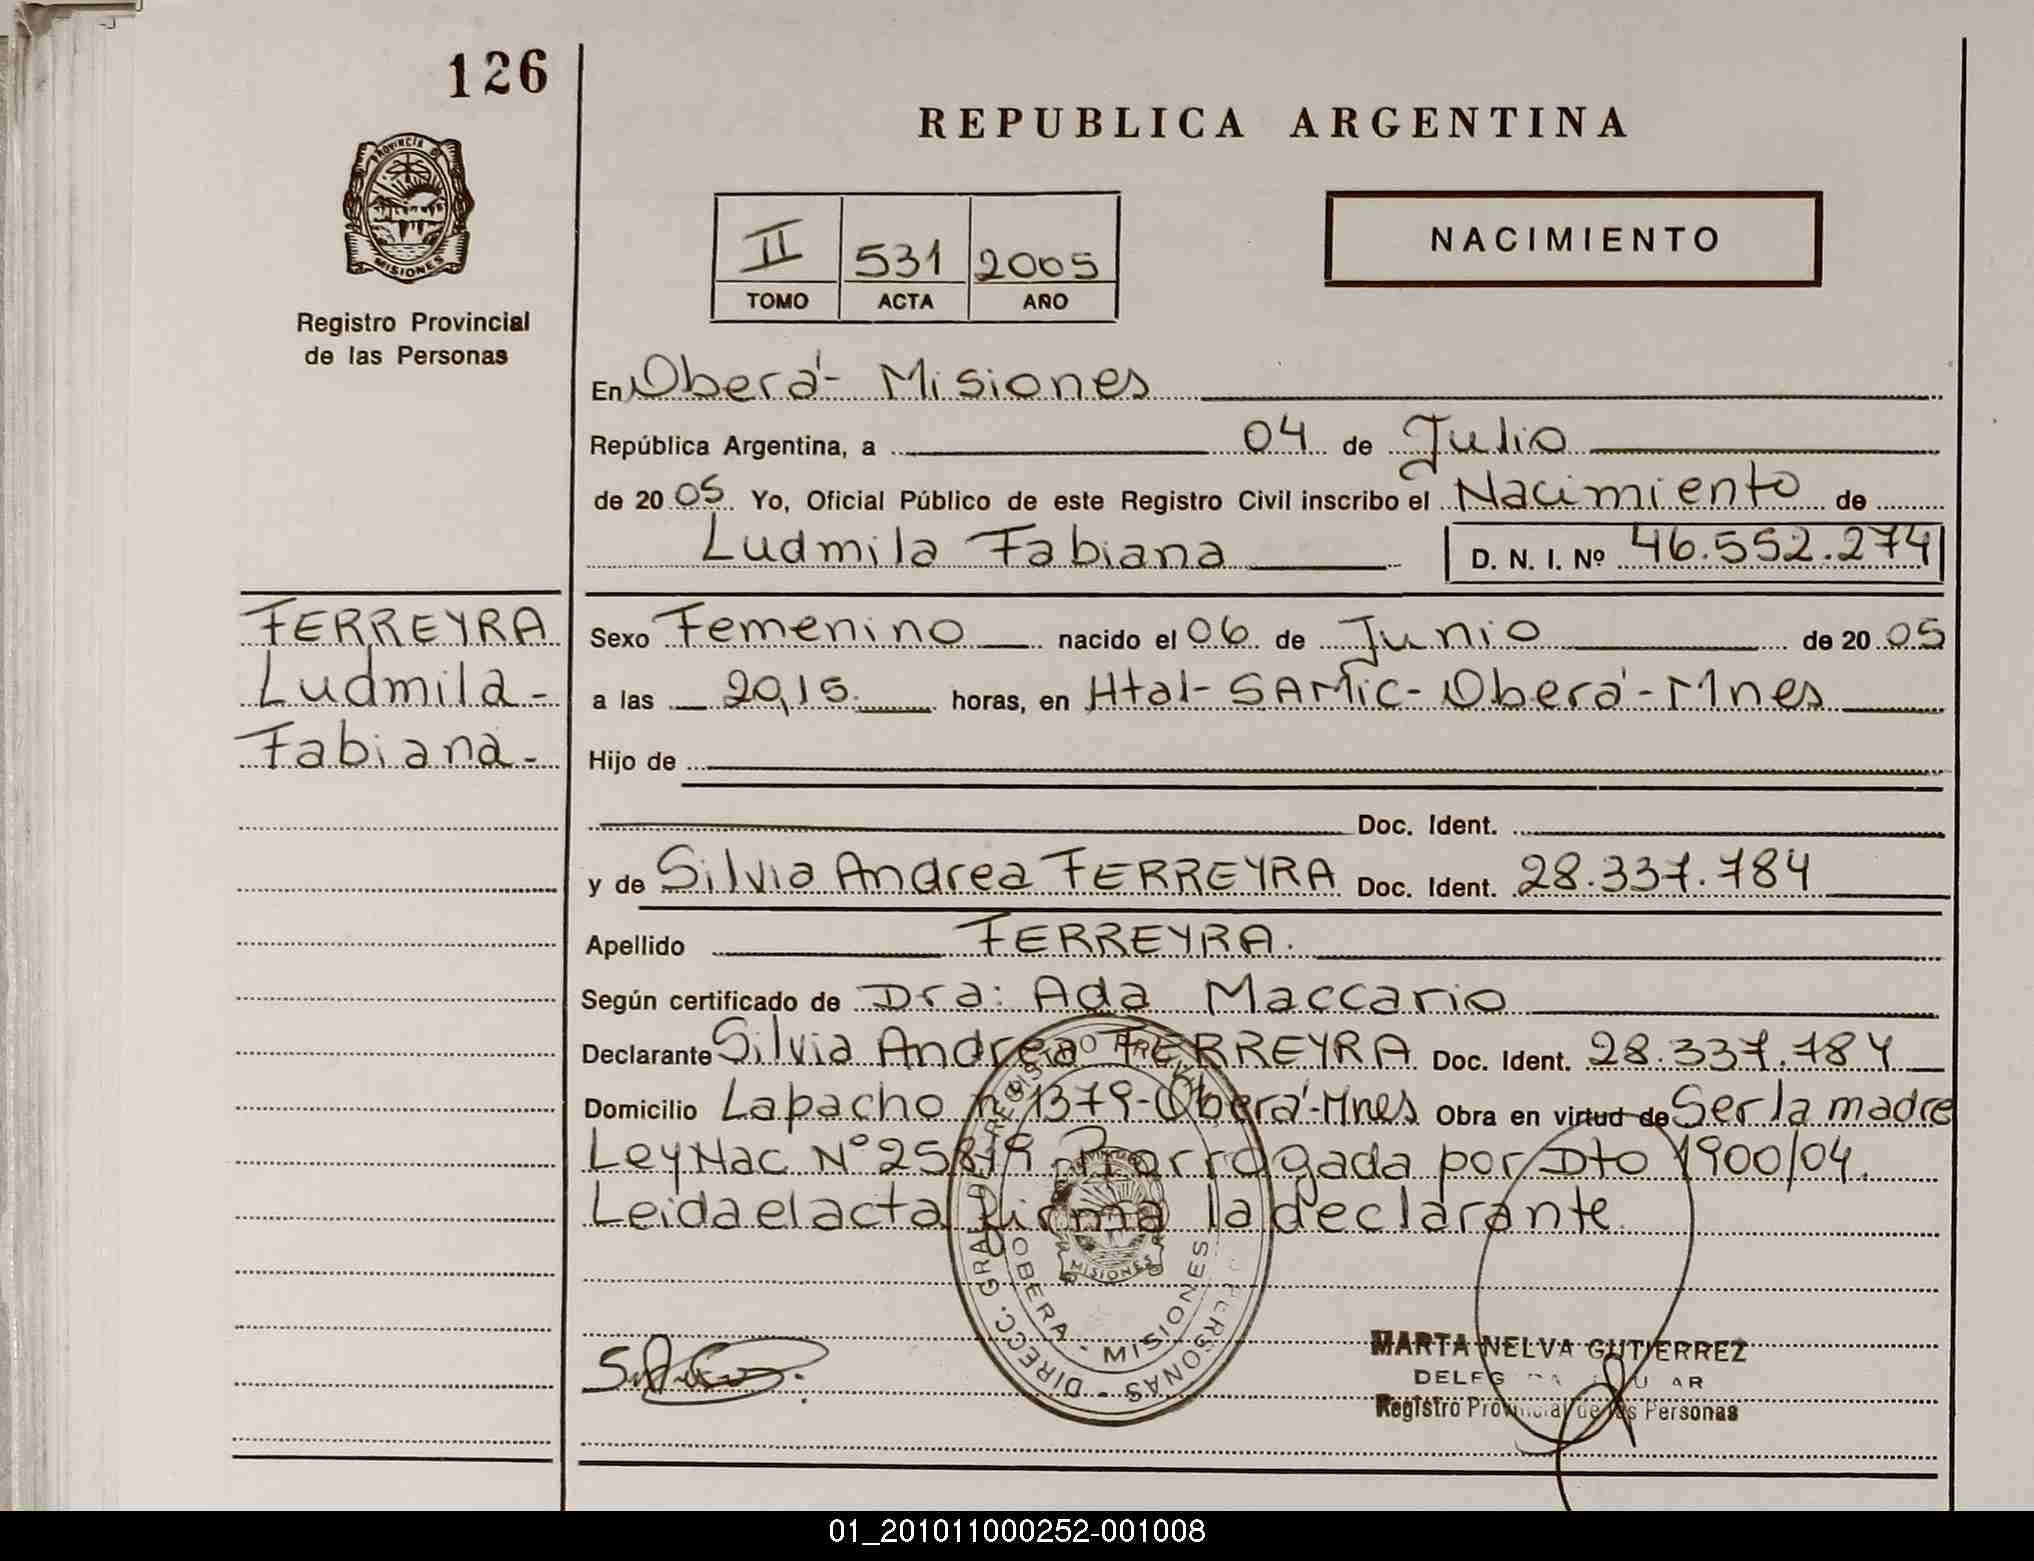 126
REPUBLICA ARGENTINA
PROVINCIA DE
MISIONES
Registro Provincial
de las Personas
II 531 2005
TOMO ACTA AÑO
NACIMIENTO
En Oberá - Misiones
República Argentina, a 04 de Julio
de 20 05 Yo, Oficial Público de este Registro Civil inscribo el Nacimiento de
Ludmila Fabiana D. N. I. Nº 46.552.274
FERREYRA
Ludmila -
Fabiana -
Sexo Femenino nacido el 06 de Junio de 20 05
a las 20,15. horas, en Htal - SAMIC - Oberá - Mnes
Hijo de
Doc. Ident.
y de Silvia Andrea FERREYRA Doc. Ident. 28.337.784
Apellido FERREYRA.
Según certificado de Dra: Ada Maccario
Declarante Silvia Andrea FERREYRA Doc. Ident. 28.337.784
Domicilio Lapacho nº 1379 - Oberá - Mnes Obra en virtud de Ser la madre
Ley Nac Nº 25819 Prorrogada por Dto 1900/04.
Leida el acta firma la declarante
DIRECC. GRAL. DE REGISTRO PERSONAS
OBERA - MISIONES
MISIONES
MARTA NELVA GUTIERREZ
Registro Provincial de las Personas
01_201011000252-001008